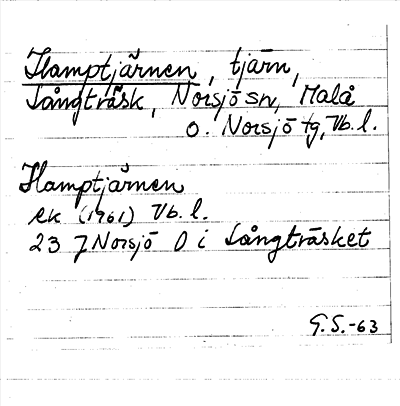 Hamptjärnen, tjärn,
Långträsk, Norsjö sn, Malå
o. Norsjö tg, Vb. l.
Hamptjärnen
ek (1961) Vb. l.
23 7 Norsjö O i Långträsket
G.S.-63